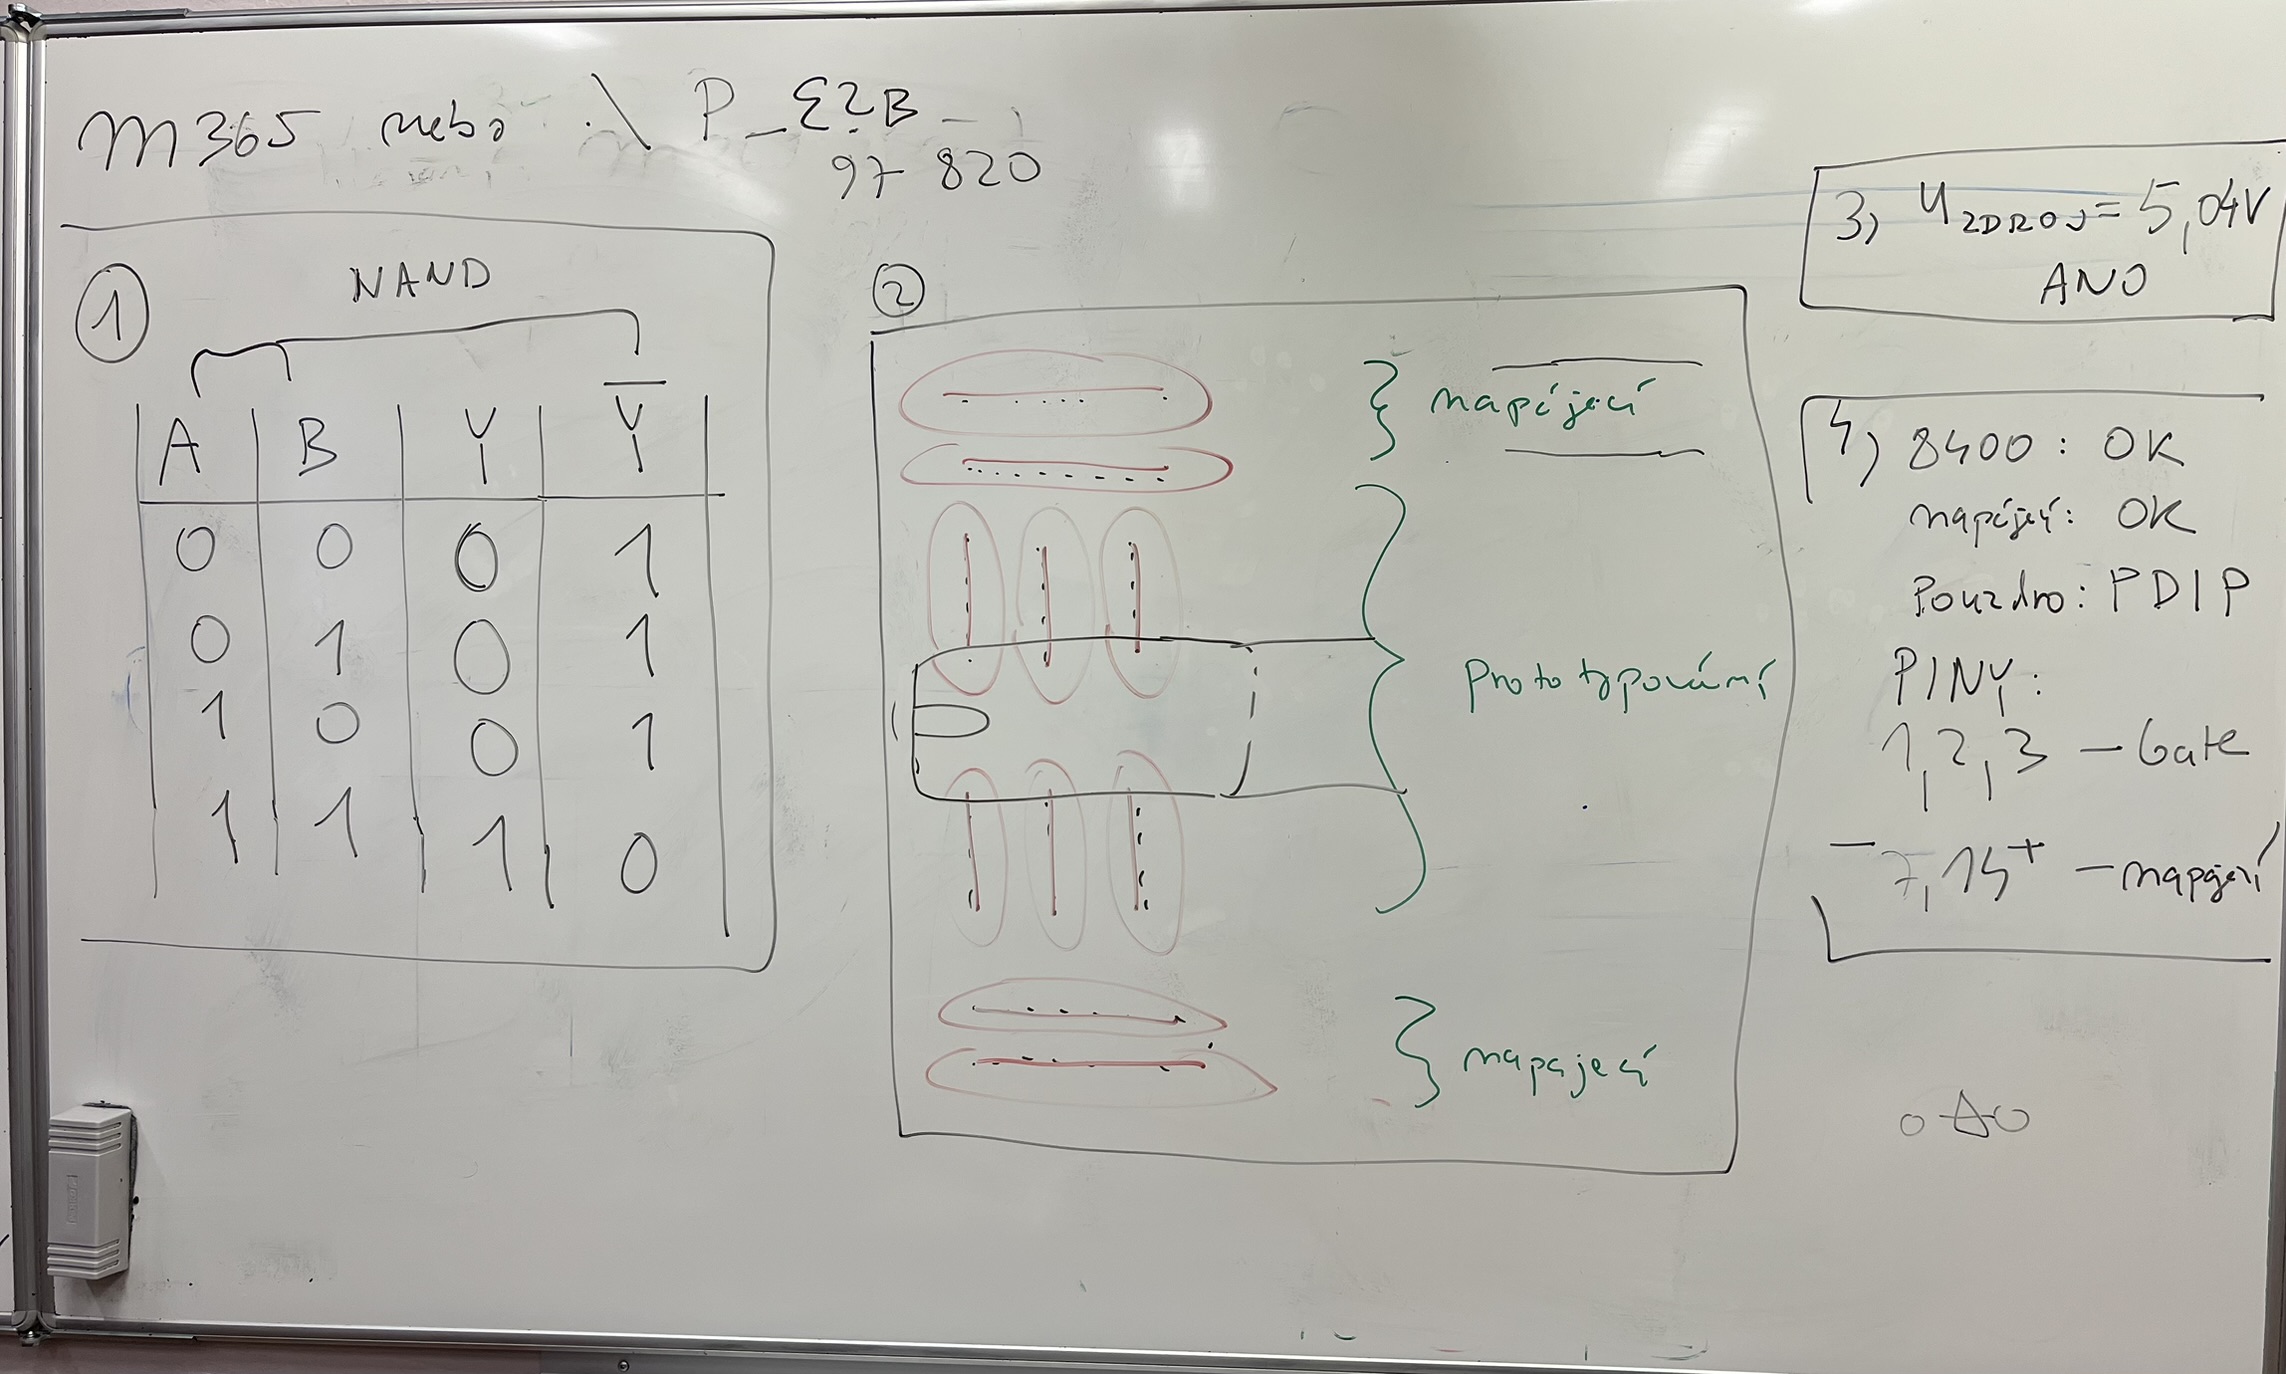 M365 nebo .\ P_E2B_
97 820
①
NAND
A B Y Y̅
0 0 0 1
0 1 0 1
1 0 0 1
1 1 1 0
②
napájecí
prototypování
napájecí
3) UZDROJ = 5,04V
ANO
4) 8400 : OK
napájení: OK
Pouzdro: PDIP
PINY:
1, 2, 3 – Gate
– 7, 14 + – napájení